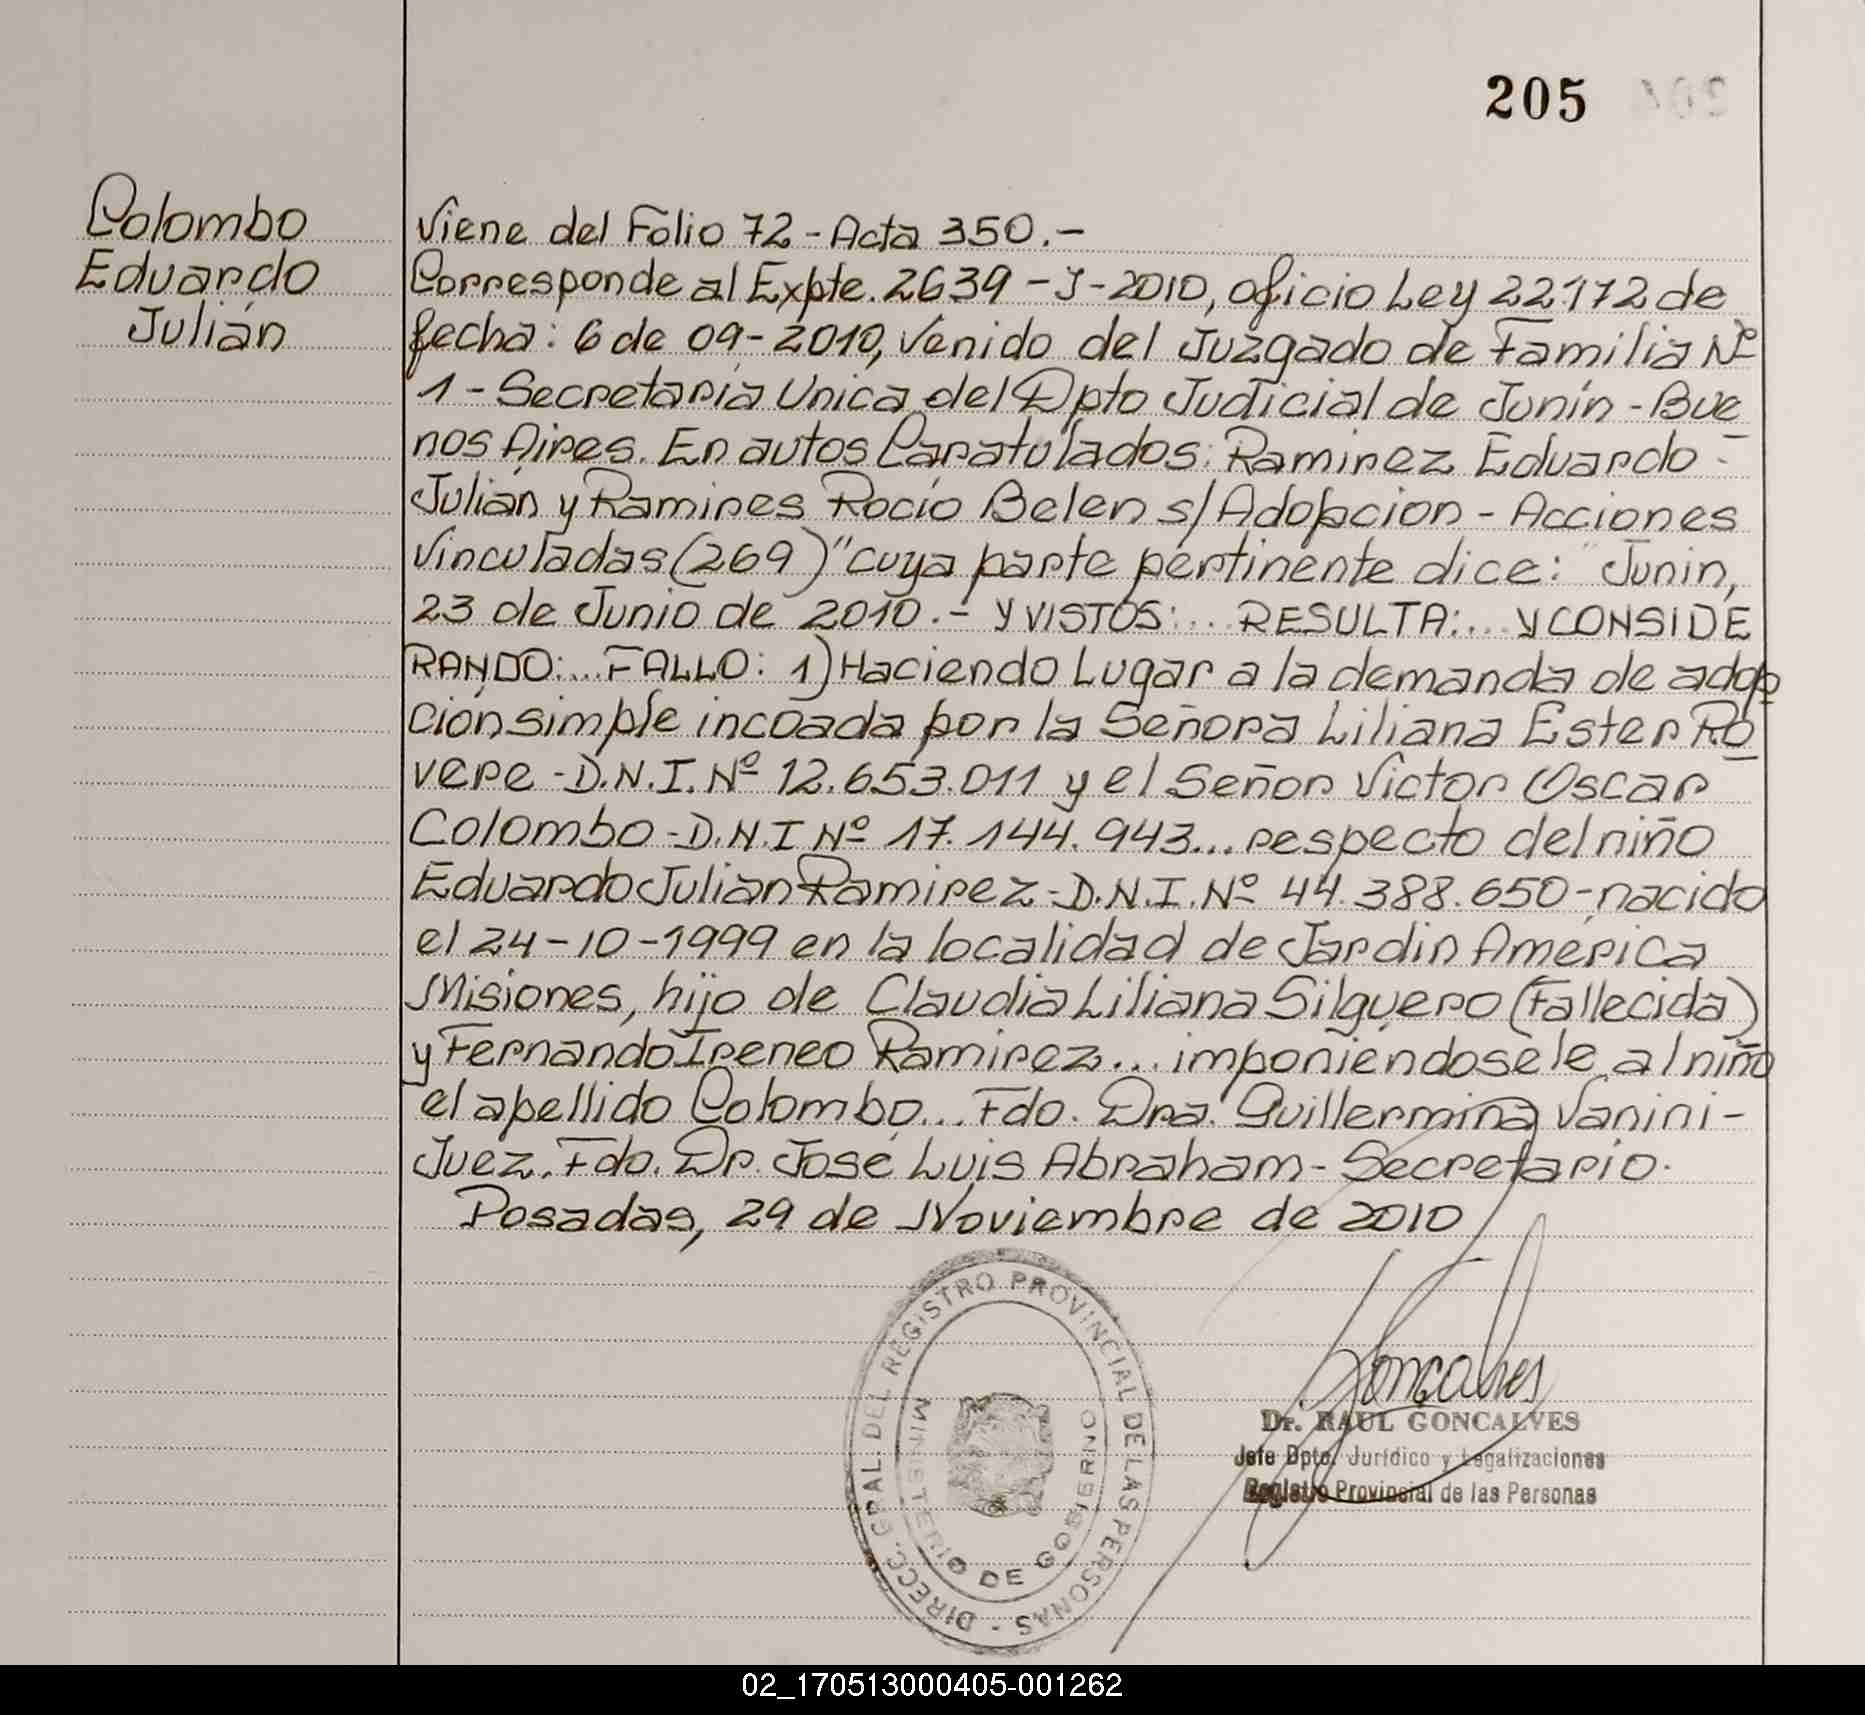 205
Colombo
Eduardo
Julián
Viene del Folio 72 - Acta 350.-
Corresponde al Expte. 2639 - J - 2010, oficio Ley 22172 de
fecha: 6 de 09-2010, venido del Juzgado de Familia Nº
1 - Secretaría Unica del Dpto Judicial de Junín - Bue
nos Aires. En autos Caratulados: Ramirez Eduardo -
Julián y Ramires Rocío Belen s/ Adopcion - Acciones
vinculadas (269)" cuya parte pertinente dice: "Junin,
23 de Junio de 2010.- Y VISTOS:... RESULTA:... y CONSIDE
RANDO:... FALLO: 1) Haciendo Lugar a la demanda de adop
ción simple incoada por la Señora Liliana Ester Ro
vere - D.N.I. Nº 12.653.011 y el Señor Victor Oscar
Colombo - D.N.I Nº 17.144.943... respecto del niño
Eduardo Julian Ramirez - D.N.I. Nº 44.388.650 - nacido
el 24-10-1999 en la localidad de Jardin América
Misiones, hijo de Claudia Liliana Silguero (Fallecida)
y Fernando Ireneo Ramirez... imponiendosele al niño
el apellido Colombo... Fdo. Dra. Guillermina Vanini -
Juez. Fdo. Dr. José Luis Abraham - Secretario.
Posadas, 29 de Noviembre de 2010
DIRECC. GRAL. DEL REGISTRO PROVINCIAL DE LAS PERSONAS -
MINISTERIO DE GOBIERNO
Goncalves
Dr. RAUL GONCALVES
Jefe Dpto. Jurídico y Legalizaciones
Registro Provincial de las Personas
02_170513000405-001262